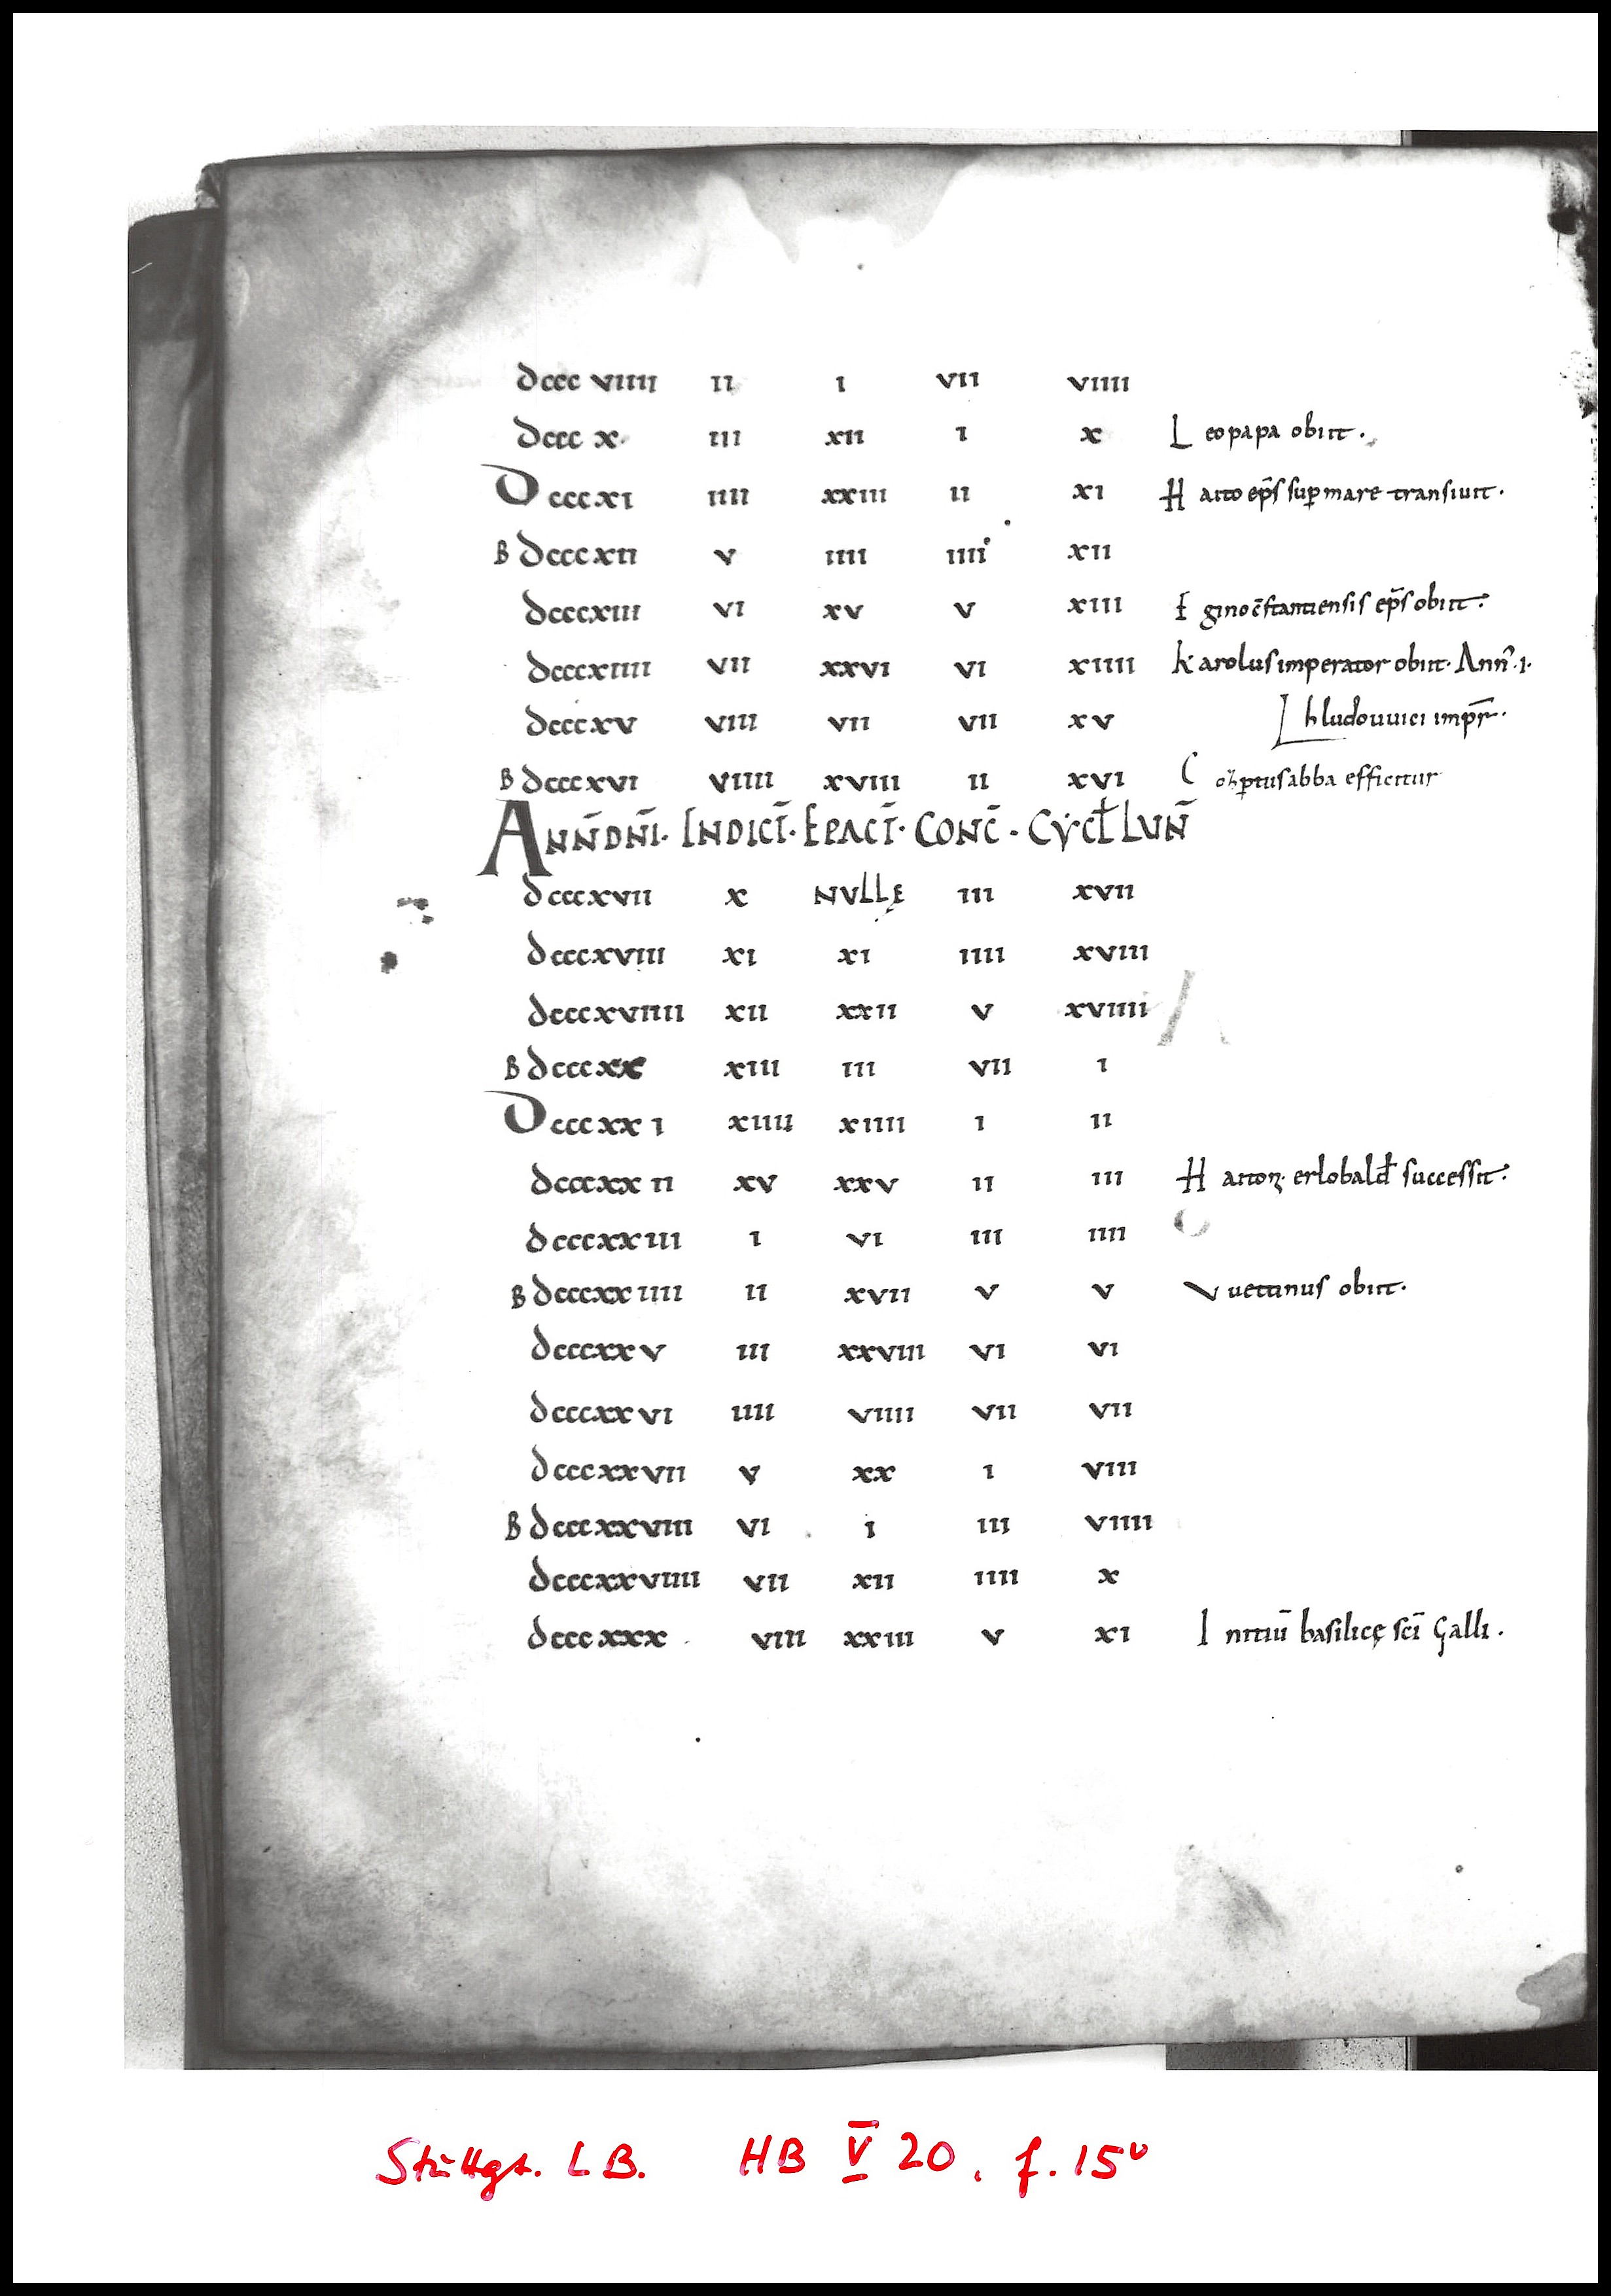 dccc viiii ii i vii viiii
dccc x. iii xii i x Leo papa obiit.
Dccc xi iiii xxiii ii xi Hatto ep̄s sup̱ mare transiuit.
B dccc xii v iiii iiii xii
dccc xiii vi xv v xiii Egino c̄stantiensis ep̄s obiit.
dccc xiiii vii xxvi vi xiiii Karolus imperator obiit. Ann̄. i.
dccc xv viii vii vii xv hludouuici imp̄r.
B dccc xvi viiii xviii ii xvi abba efficitur
ANN̄ DN̄I. INDICT̄. EPACT̄. CONC̄. CYCŁ LUN̄
dccc xvii x NULLĘ iii xvii
dccc xviii xi xi iiii xviii
dccc xviiii xii xxii v xviiii
B dccc xx xiii iii vii i
Dccc xx i xiiii xiiii i ii
dccc xx ii xv xxv ii iii Hattoꝝ. erlobald successit.
dccc xx iii i vi iii iiii
B dccc xx iiii ii xvii v v Vuettinus obiit.
dccc xx v iii xxviii vi vi
dccc xx vi iiii viiii vii vii
dccc xx vii v xx i viii
B dccc xx viii vi i iii viiii
dccc xx viiii vii xii iiii x
dccc xxx viii xxiii v xi Initiū basilicę sc̄i Galli.
Stuttgt. LB. HB V 20, f. 15v